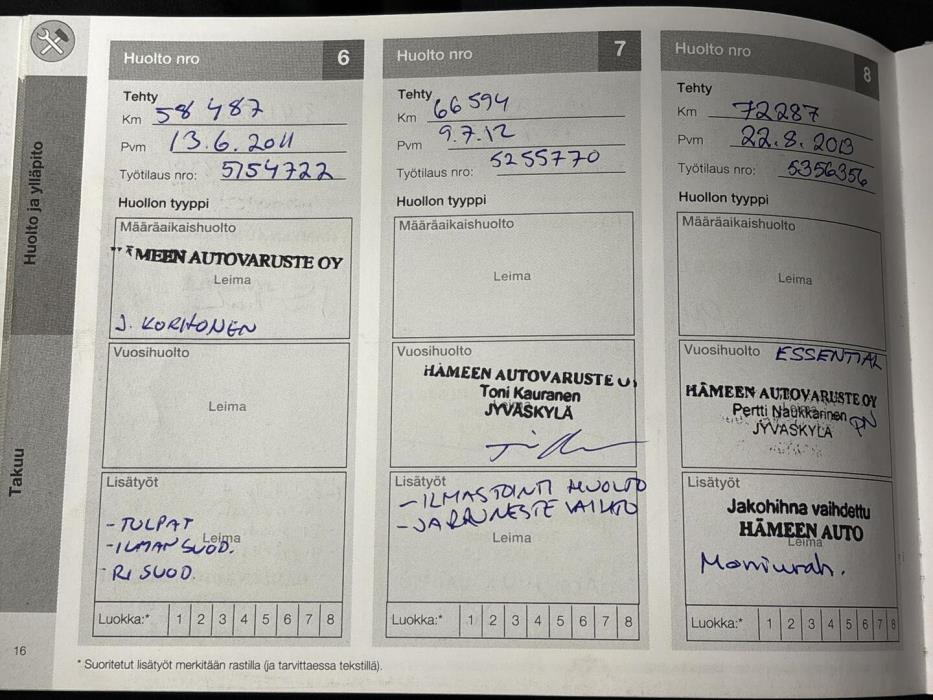 Huolto ja ylläpito
Takuu
Huolto nro 6
Tehty
Km 58 487
Pvm 13.6.2011
Työtilaus nro: 5154722
Huollon tyyppi
Määräaikaishuolto
HÄMEEN AUTOVARUSTE OY
Leima
J. KORHONEN
Vuosihuolto
Leima
Lisätyöt
- TULPAT
Leima
- ILMANSUOD.
- RI SUOD.
Luokka:* 1 2 3 4 5 6 7 8
Huolto nro 7
Tehty
Km 66 594
Pvm 9.7.12
Työtilaus nro: 5255770
Huollon tyyppi
Määräaikaishuolto
Leima
Vuosihuolto
HÄMEEN AUTOVARUSTE
Toni Kauranen
Leima
JYVÄSKYLÄ
Lisätyöt
- ILMASTOINTI HUOLTO
- JARRUNESTE VAIHTO
Leima
Luokka:* 1 2 3 4 5 6 7 8
Huolto nro 8
Tehty
Km 72287
Pvm 22.8.2013
Työtilaus nro: 5356356
Huollon tyyppi
Määräaikaishuolto
Leima
Vuosihuolto ESSENTIAL
HÄMEEN AUTOVARUSTE OY
Leima
Pertti Naukkarinen PN
JYVÄSKYLÄ
Lisätyöt
Jakohihna vaihdettu
HÄMEEN AUTO
Leima
Moniurah.
Luokka:* 1 2 3 4 5 6 7 8
16
* Suoritetut lisätyöt merkitään rastilla (ja tarvittaessa tekstillä).